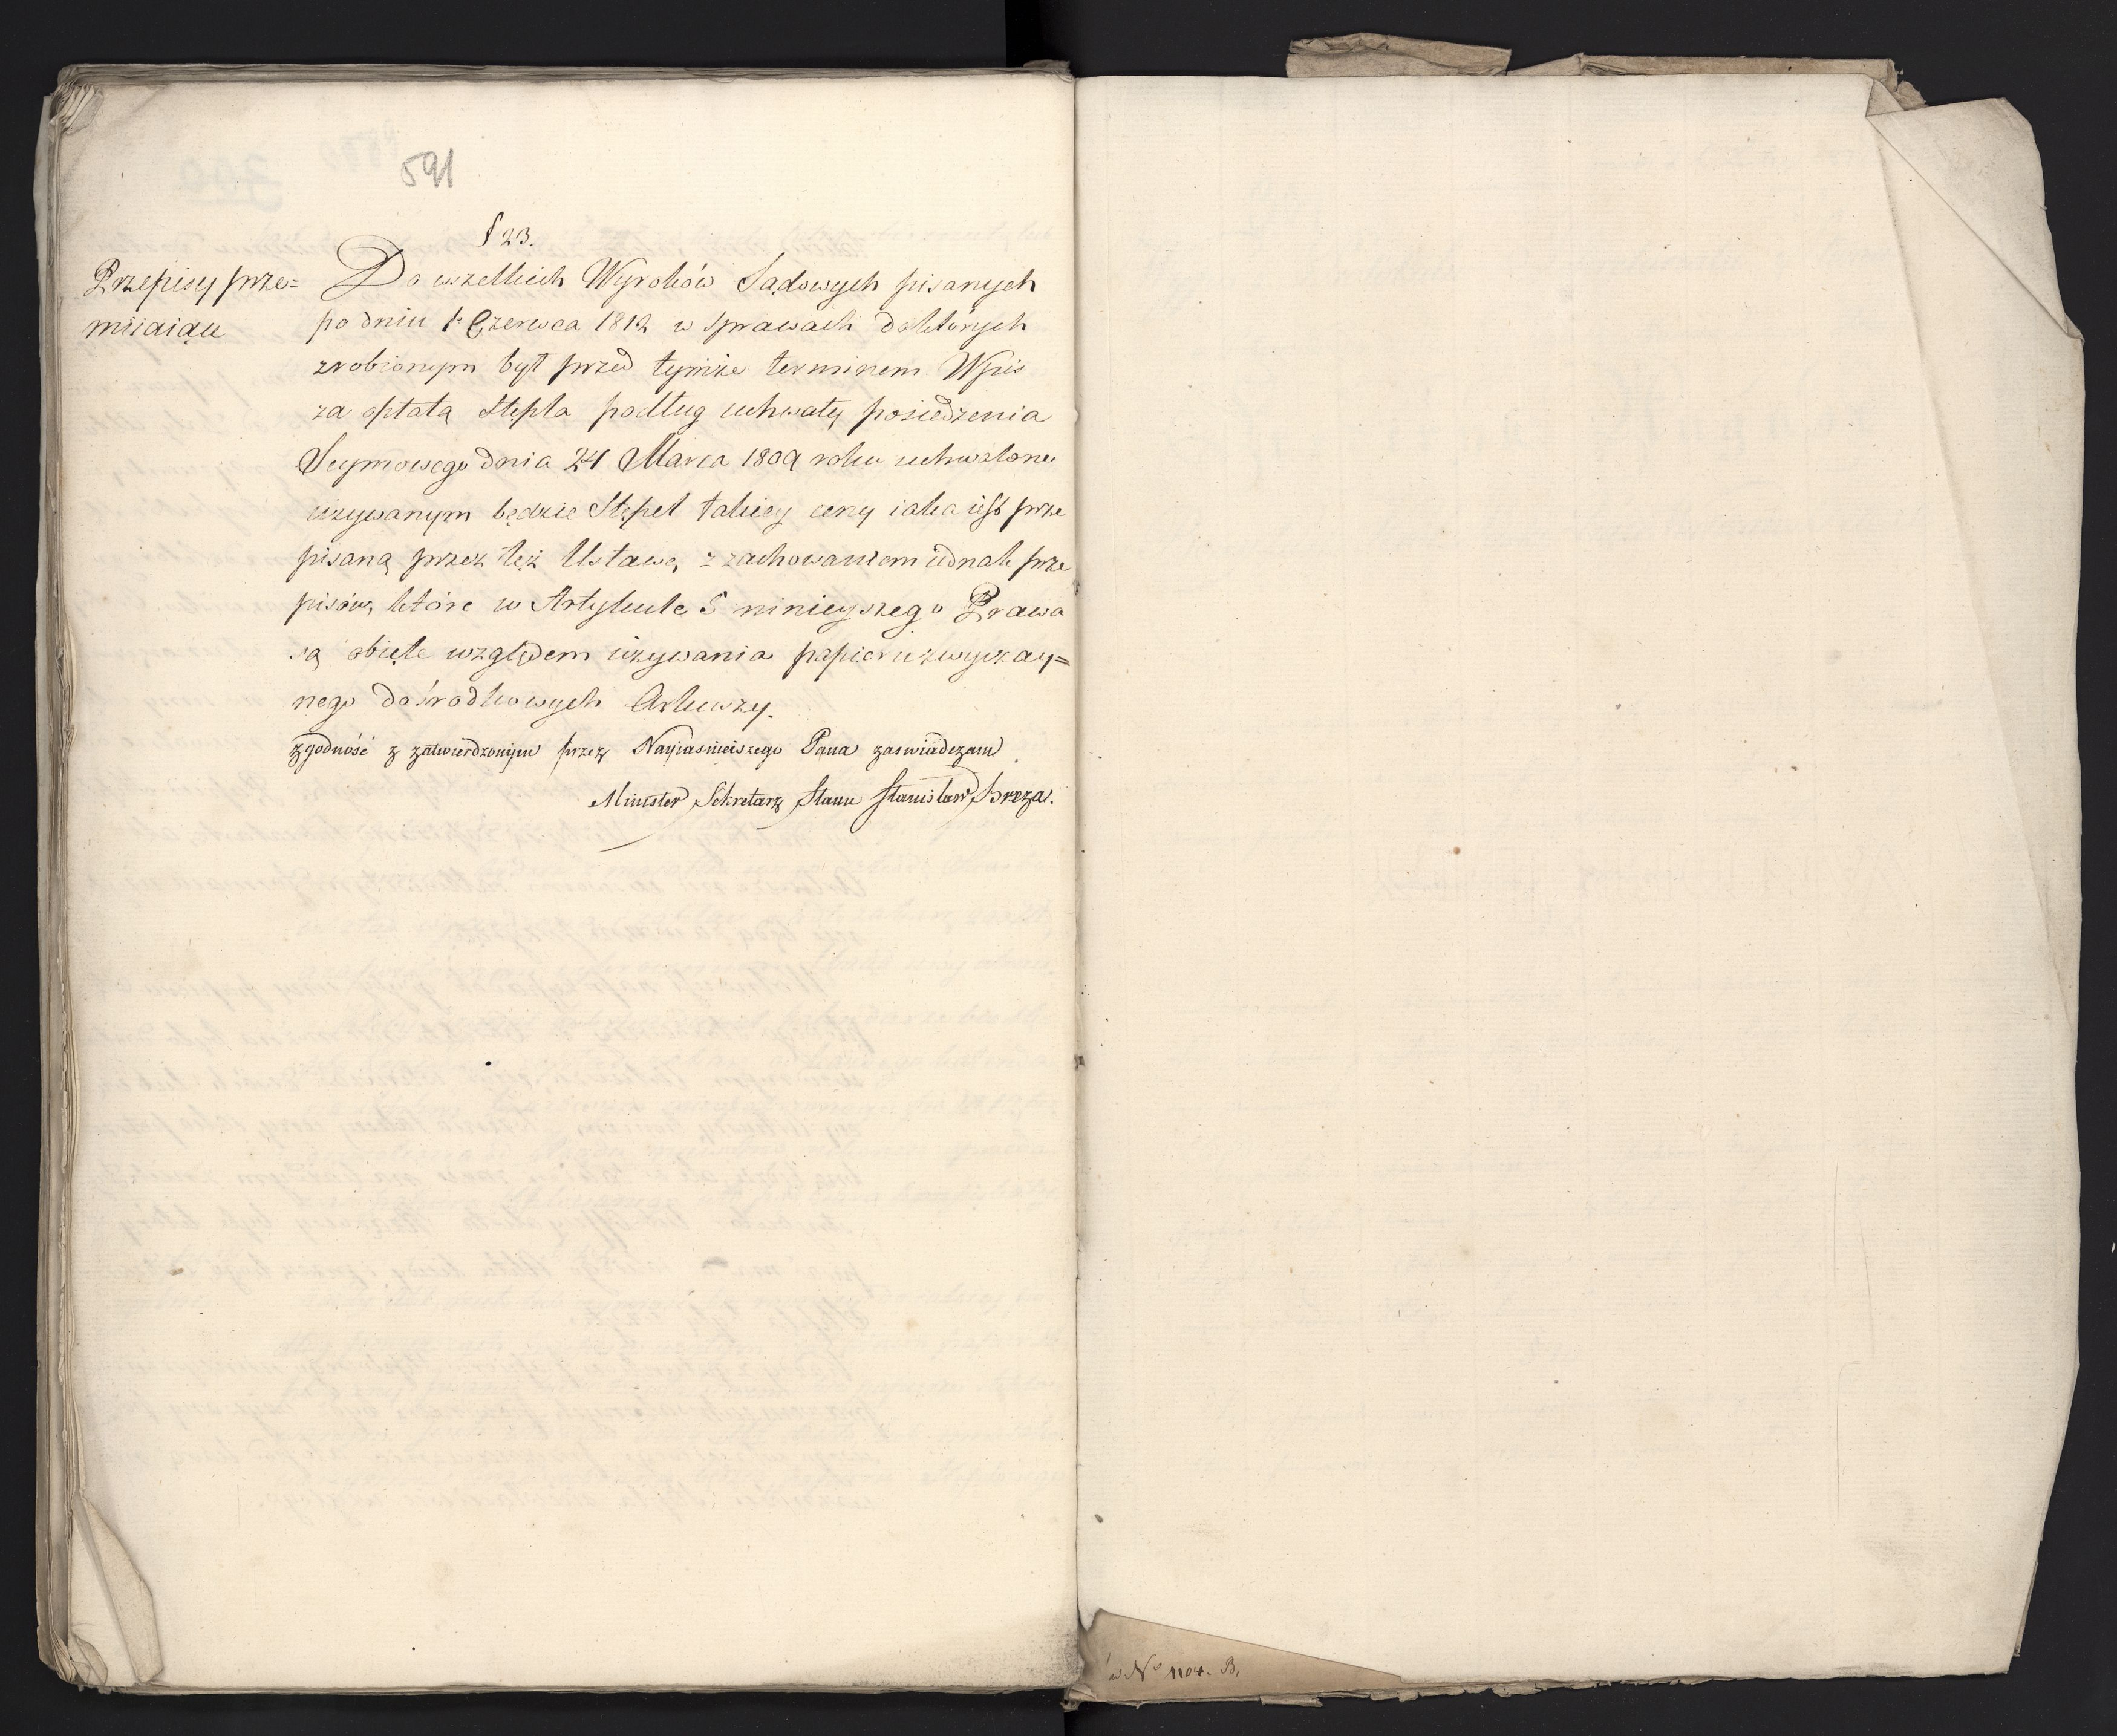 591
§ 23.
Przepisy prze=
miiaiące
Do wszelkich Wyroków Sądowych pisanych
po dniu 1. Czerwca 1812 w sprawach do których
zrobionym był przed tymże terminem Wpis
za opłatą Stępla podług uchwały posiedzenia
Seymowego dnia 24 Marca 1809 roku uchwalone
używanym będzie Stępel takiey ceny iaka iest prze
pisaną przez też Ustawę, z zachowaniem iednak prze
pisów, które w Artykule 5 ninieyszego Prawa
są obięte względem używania papieru zwyczay=
nego do środkowych Arkuszy.
zgodność z zatwierdzonym przez Nayiaśnieiszego Pana zaswiadczam
Minister Sekretarz Stanu Stanisław Breza.
w No 1104. B.